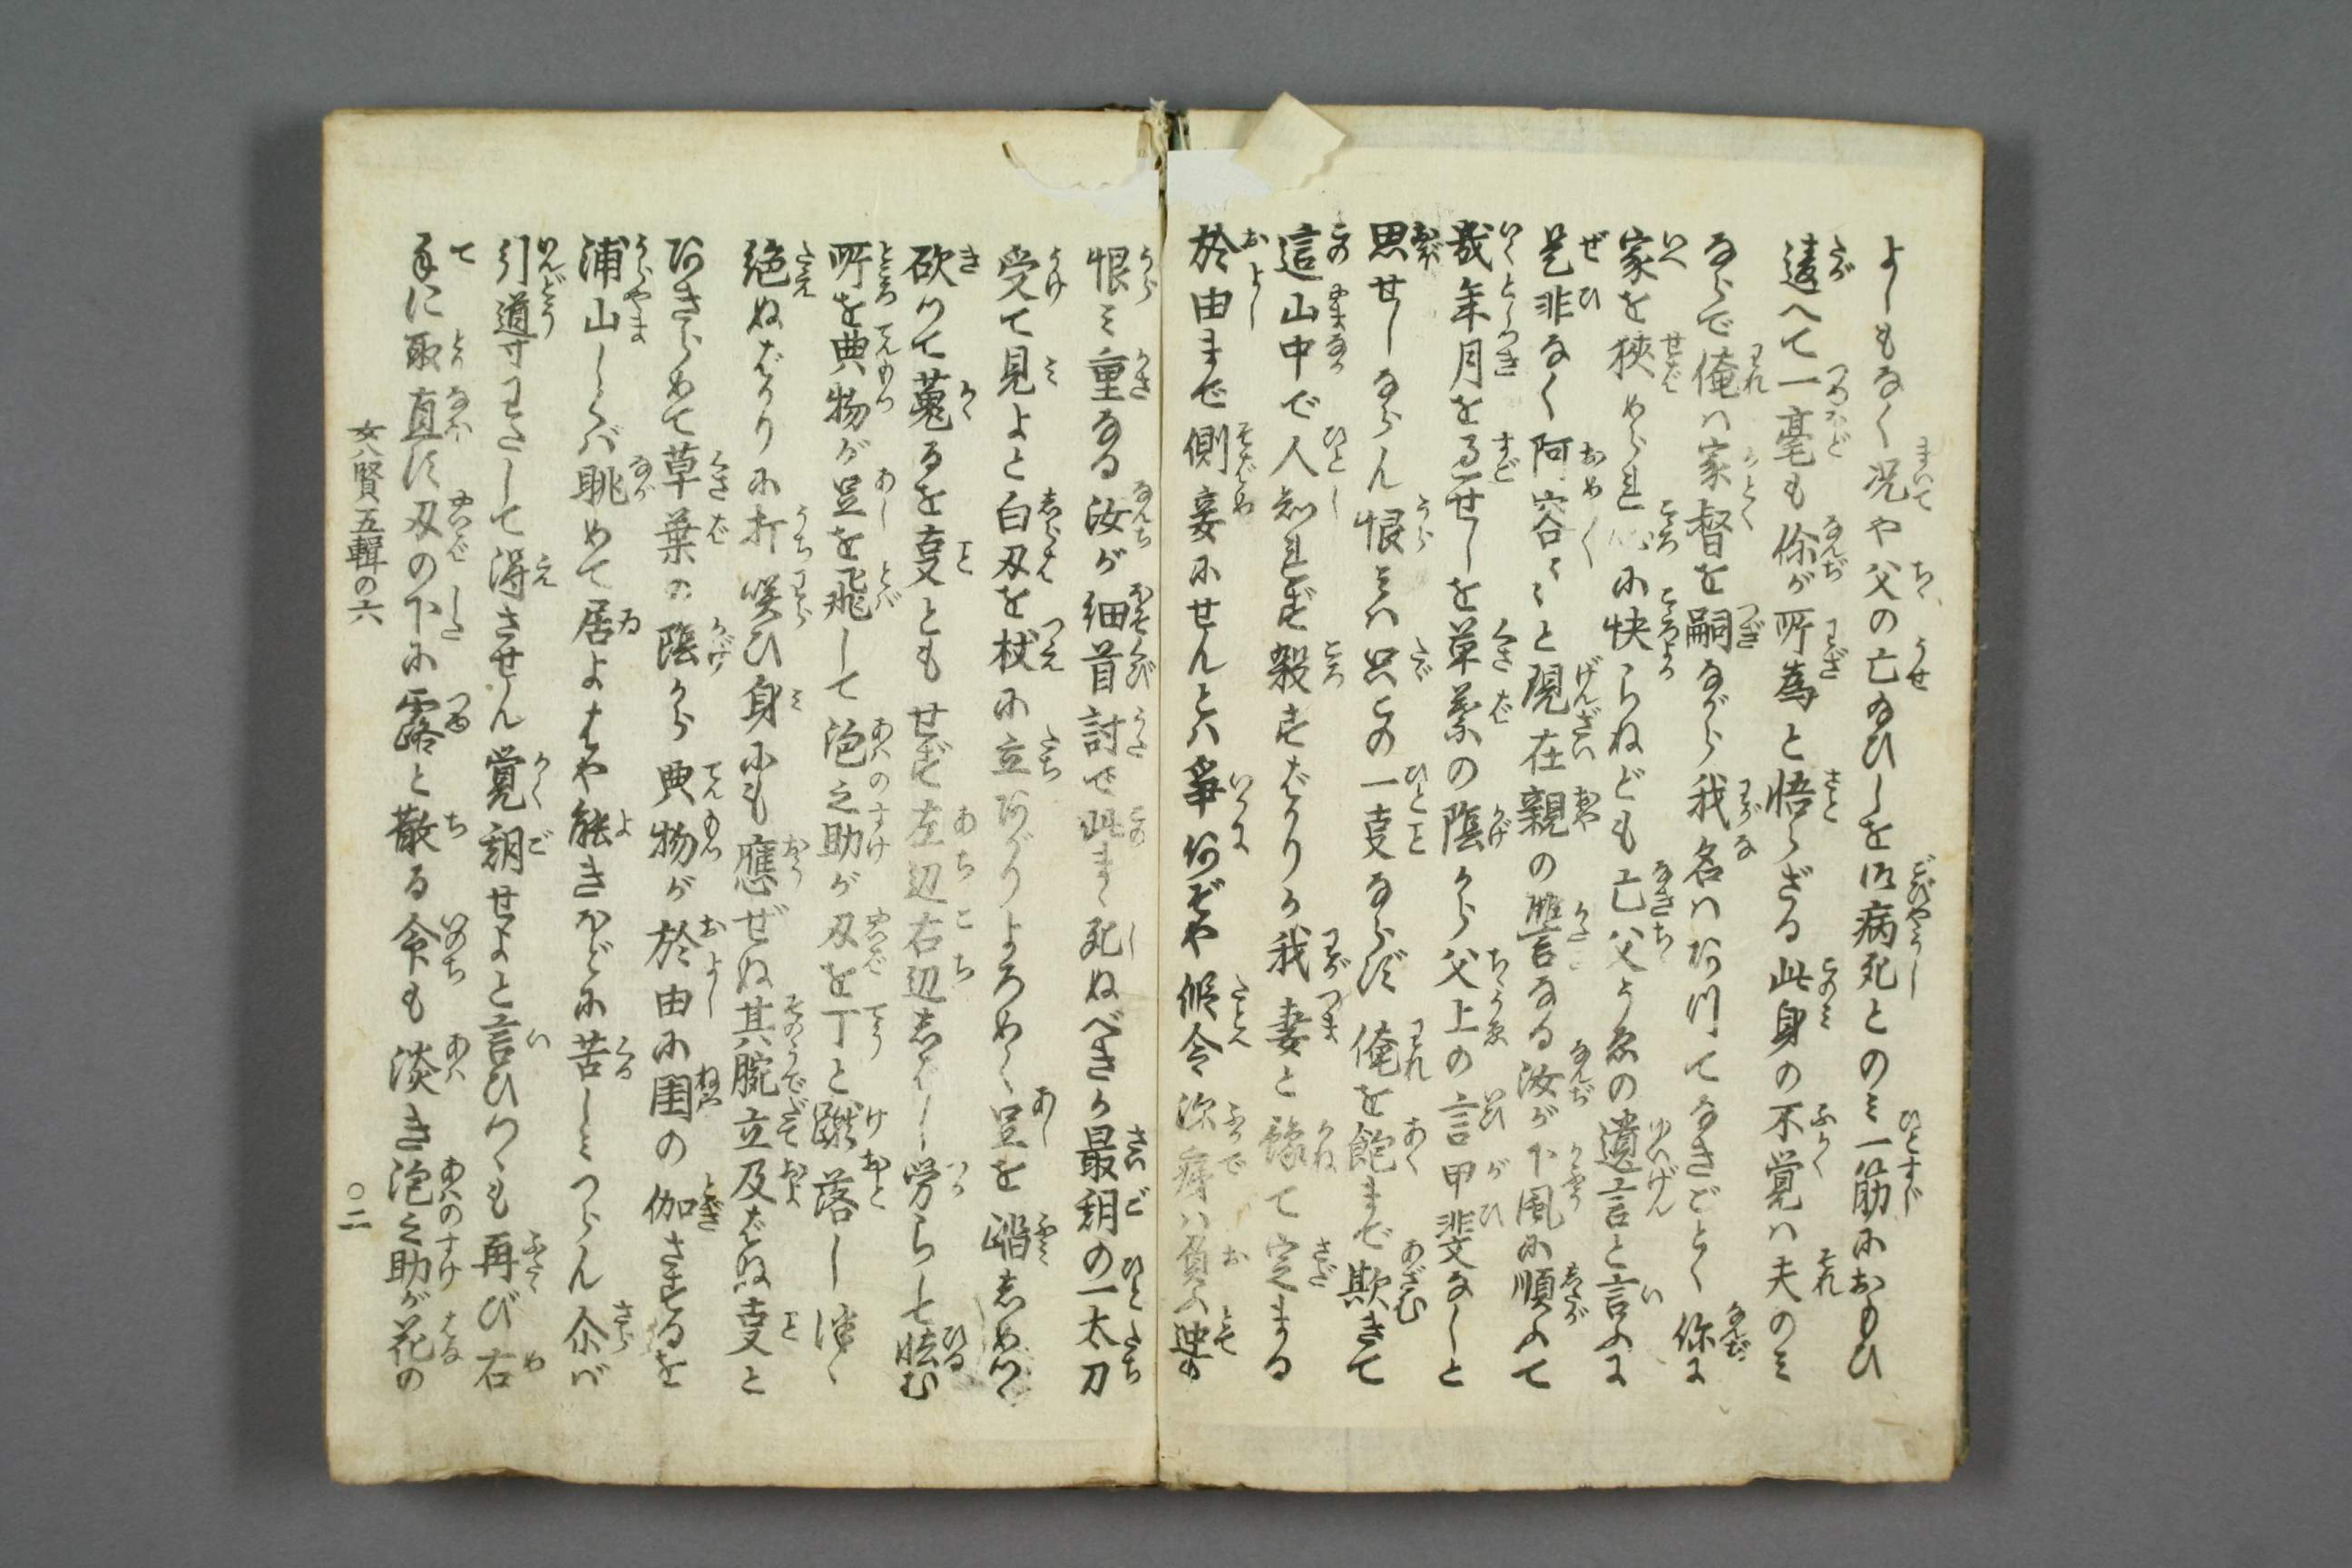 よしもなく况や父の亡給ひしを御病死とのミ一筋におもひ
違へて一毫も你が所為と悟らざる此身の不覚ハ夫のミ
ならで俺ハ家督を嗣ながら我名ハありてなきごとく你に
家を狭められ心に快らねども亡父うへの遺言と言ふに
是非なく阿容〻〻と現在親の讐なる汝が下風に順ふて
幾年月を過せしを草葉の蔭から父上の言甲斐なしと
思せしならん恨ミハ只この一事ならず俺を飽まで欺きて
這山中で人知れず殺すばかりか我妻と豫て定まる
於由まで側妾にせんとハ爭何ぞや假令深痍ハ負ふ迚も
恨ミ重なる汝が細首討で此まゝ死ぬべきか最期の一太刀
受て見よと白刃を杖に立あがりよろめく足を踏しめつゝ
砍つて蒐るを事ともせず左辺右辺しばし労らして眩む
所を典物が足を飛して泡之助が刃を丁と蹴落し冷〻
絶ぬばかりに打咲ひ身にも應ぜぬ其腕立及ばぬ事と
あきらめて草葉の蔭から典物が於由に閨の伽さするを
浦山しくバ眺めて居よはや能きほどに苦しミつらん尓バ
引導わたして得させん覚期せよと言ひつゝも再び右
手に取直す刃の下に露と散る命も淡き泡之助が花の
女八賢五輯の六
〇二